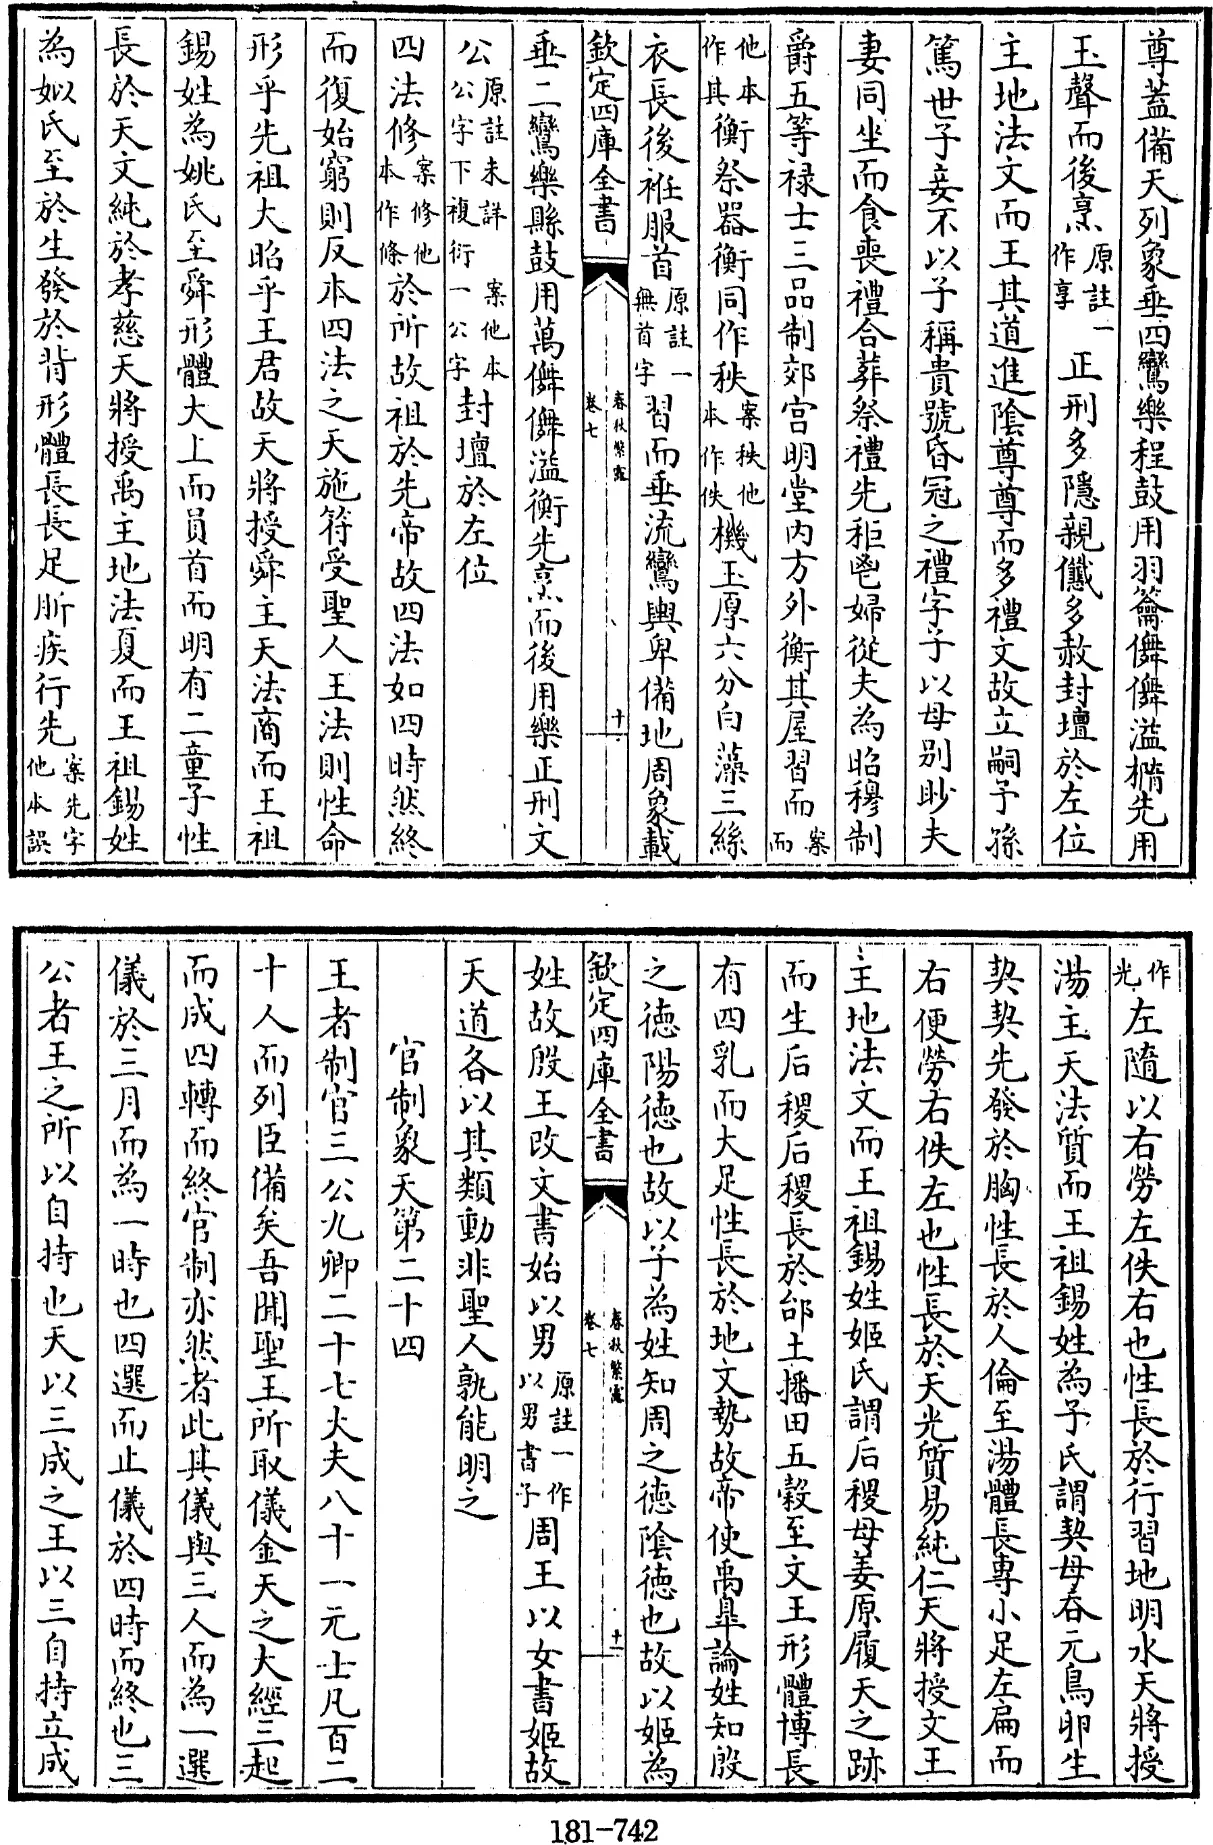 尊蓋備天列象垂四鸞樂程鼓用羽籥儛儛溢橢先用
玉聲而後烹原註一作享正刑多隱親㦰多赦封壇於左位
主地法文而王其道進陰尊尊而多禮文故立嗣予孫
篤世子妾不以子稱貴號昏冠之禮字子以母別眇夫
妻同坐而食喪禮合葬祭禮先秬鬯婦從夫為昭穆制
爵五等祿士三品制郊宫明堂内方外衡其屋習而案而
他本作其衡祭器衡同作秩案秩他本作佚機玉厚六分白藻三絲
衣長後袵服首原註一無首字習而垂流鸞輿卑備地周象載
欽定四庫全書
春秋繁露
卷七
十
垂二鸞樂縣鼓用萬儛儛溢衡先烹而後用樂正刑文
公原註未詳 案他本公字下複衍一公字封壇於左位
四法修案修他本作條於所故祖於先帝故四法如四時然終
而復始窮則反本四法之天施符受聖人王法則性命
形乎先祖大昭乎王君故天將授舜主天法商而王祖
錫姓為姚氏至舜形體大上而員首而明有二童子性
長於天文純於孝慈天將授禹主地法夏而王祖錫姓
為姒氏至於生發於背形體長長足肵疾行先案先字他本誤
作光左隨以右勞左佚右也性長於行習地明水天將授
湯主天法質而王祖錫姓為子氏謂契母吞元鳥卵生
契契先發於胸性長於人倫至湯體長專小足左扁而
右便勞右佚左也性長於天光質易純仁天將授文王
主地法文而王祖錫姓姬氏謂后稷母姜原履天之跡
而生后稷后稷長於邰土播田五穀至文王形體博長
有四乳而大足性長於地文勢故帝使禹臯論姓知殷
之徳陽徳也故以子為姓知周之徳陰徳也故以姬為
欽定四庫全書
春秋繁露
卷七
十一
姓故殷王改文書始以男原註一作以男書子周王以女書姬故
天道各以其類動非聖人孰能明之
官制象天第二十四
王者制官三公九卿二十七大夫八十一元士凡百二
十人而列臣備矣吾聞聖王所取儀金天之大經三起
而成四轉而終官制亦然者此其儀與三人而為一選
儀於三月而為一時也四選而止儀於四時而終也三
公者王之所以自持也天以三成之王以三自持立成
181-742